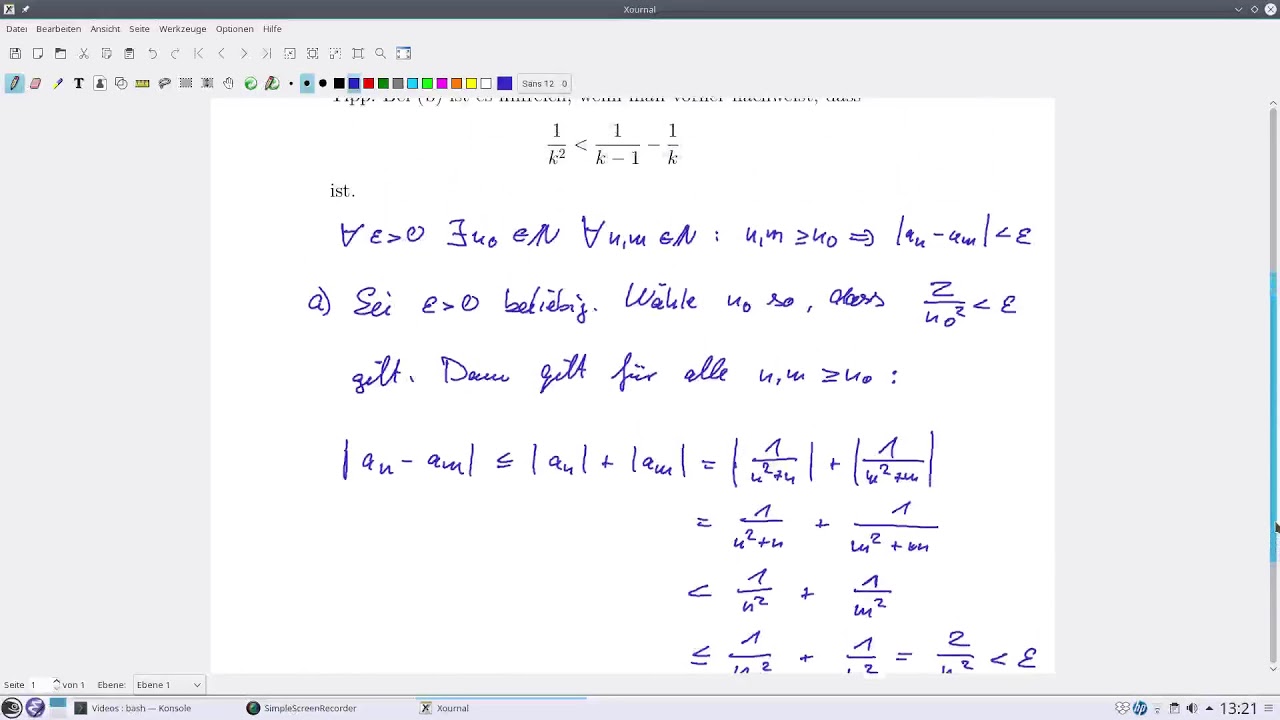 Xournal
Datei Bearbeiten Ansicht Seite Werkzeuge Optionen Hilfe
T Sans 12 0
Tipp: Bei (b) ist es hilfreich, wenn man vorher nachweist, dass
1/k² < 1/(k − 1) − 1/k
ist.
∀ ε>0 ∃ n₀ ∈ ℕ ∀ n,m ∈ ℕ : n,m ≥ n₀ ⇒ |aₙ − aₘ| < ε
a) Sei ε>0 beliebig. Wähle n₀ so, dass 2/n₀² < ε
gilt. Dann gilt für alle n,m ≥ n₀ :
|aₙ − aₘ| ≤ |aₙ| + |aₘ| = |1/(n²+n)| + |1/(m²+m)|
= 1/(n²+n) + 1/(m²+m)
< 1/n² + 1/m²
≤ 1/n₀² + 1/n₀² = 2/n₀² < ε
Seite 1 von 1 Ebene: Ebene 1
Videos : bash — Konsole SimpleScreenRecorder Xournal 13:21